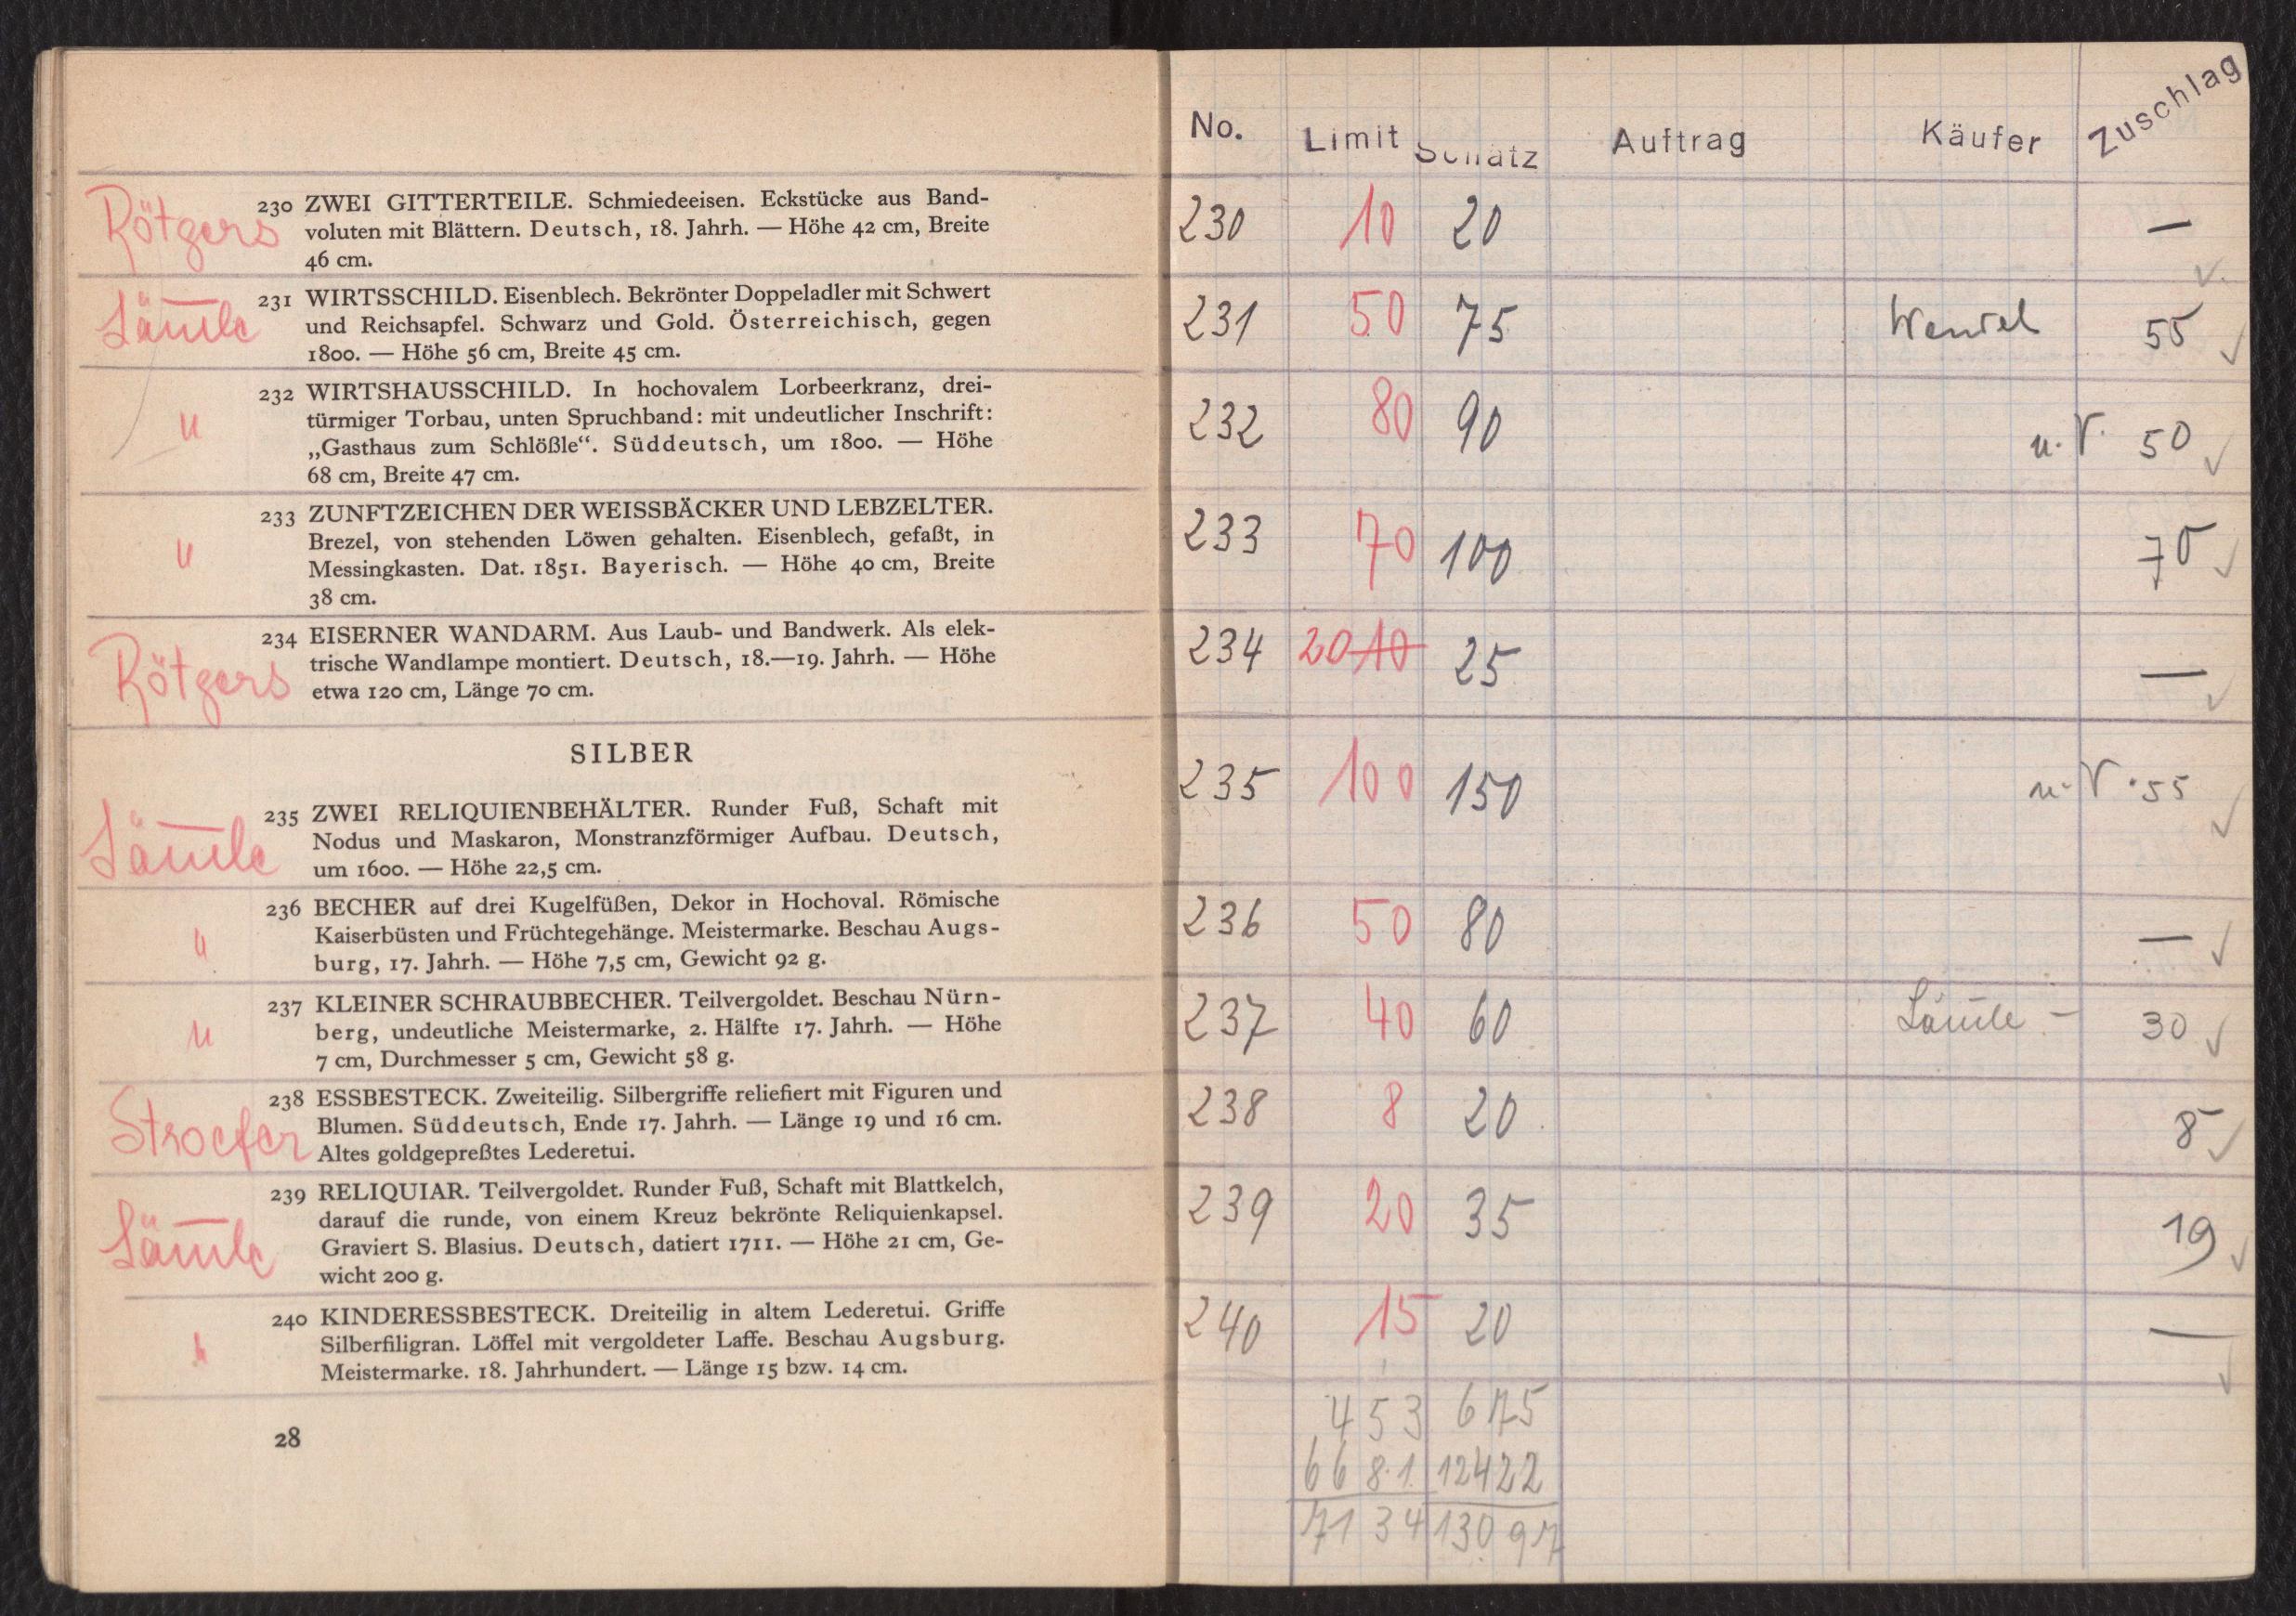 Rötgers
230 ZWEI GITTERTEILE. Schmiedeeisen. Eckstücke aus Band-
voluten mit Blättern. Deutsch, 18. Jahrh. — Höhe 42 cm, Breite
46 cm.
Säuule
231 WIRTSSCHILD. Eisenblech. Bekrönter Doppeladler mit Schwert
und Reichsapfel. Schwarz und Gold. Österreichisch, gegen
1800. — Höhe 56 cm, Breite 45 cm.
"
232 WIRTSHAUSSCHILD. In hochovalem Lorbeerkranz, drei-
türmiger Torbau, unten Spruchband: mit undeutlicher Inschrift:
„Gasthaus zum Schlößle“. Süddeutsch, um 1800. — Höhe
68 cm, Breite 47 cm.
"
233 ZUNFTZEICHEN DER WEISSBÄCKER UND LEBZELTER.
Brezel, von stehenden Löwen gehalten. Eisenblech, gefaßt, in
Messingkasten. Dat. 1851. Bayerisch. — Höhe 40 cm, Breite
38 cm.
Rötgers
234 EISERNER WANDARM. Aus Laub- und Bandwerk. Als elek-
trische Wandlampe montiert. Deutsch, 18.—19. Jahrh. — Höhe
etwa 120 cm, Länge 70 cm.
SILBER
235 ZWEI RELIQUIENBEHÄLTER. Runder Fuß, Schaft mit
Nodus und Maskaron, Monstranzförmiger Aufbau. Deutsch,
um 1600. — Höhe 22,5 cm.
"
236 BECHER auf drei Kugelfüßen, Dekor in Hochoval. Römische
Kaiserbüsten und Früchtegehänge. Meistermarke. Beschau Augs-
burg, 17. Jahrh. — Höhe 7,5 cm, Gewicht 92 g.
"
237 KLEINER SCHRAUBBECHER. Teilvergoldet. Beschau Nürn-
berg, undeutliche Meistermarke, 2. Hälfte 17. Jahrh. — Höhe
7 cm, Durchmesser 5 cm, Gewicht 58 g.
Stroefer
238 ESSBESTECK. Zweiteilig. Silbergriffe reliefiert mit Figuren und
Blumen. Süddeutsch, Ende 17. Jahrh. — Länge 19 und 16 cm.
Altes goldgepreßtes Lederetui.
239 RELIQUIAR. Teilvergoldet. Runder Fuß, Schaft mit Blattkelch,
darauf die runde, von einem Kreuz bekrönte Reliquienkapsel.
Graviert S. Blasius. Deutsch, datiert 1711. — Höhe 21 cm, Ge-
wicht 200 g.
"
240 KINDERESSBESTECK. Dreiteilig in altem Lederetui. Griffe
Silberfiligran. Löffel mit vergoldeter Laffe. Beschau Augsburg.
Meistermarke. 18. Jahrhundert. — Länge 15 bzw. 14 cm.
28
No. Limit Schätz Auftrag Käufer Zuschlag
230 10 20 —
231 50 75 55
232 80 90 u. V. 50
233 70 100 70
234 20 10 25 —
235 100 150 u. V. 55
236 50 80 —
237 40 60 30
238 8 20 8
239 20 35 19
240 15 20 —
453 675
6681 12422
7134 13097